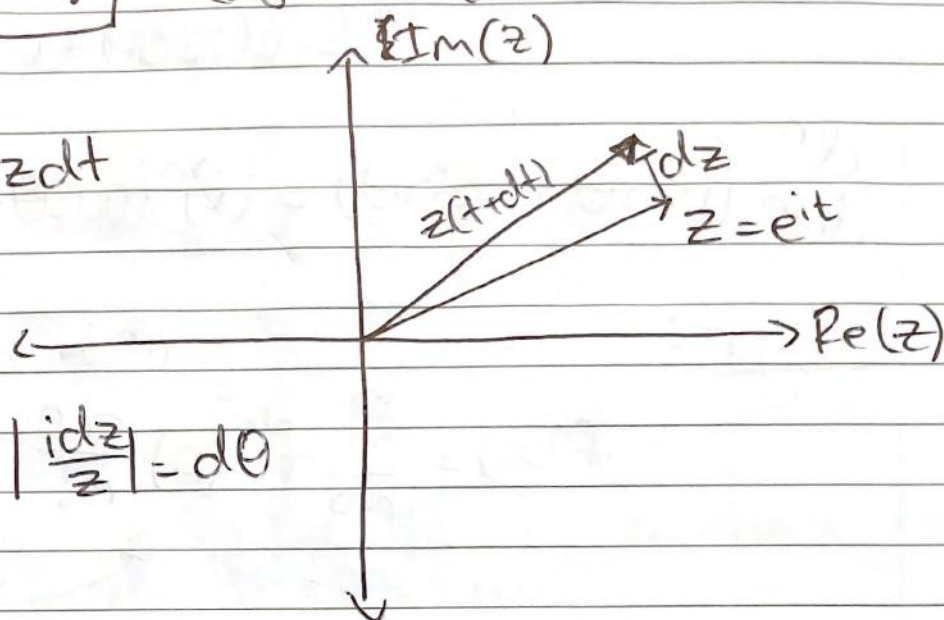 Im(z)
zdt
dz
z(t+dt)
z = e^{it}
Re(z)
|idz/z| = dθ